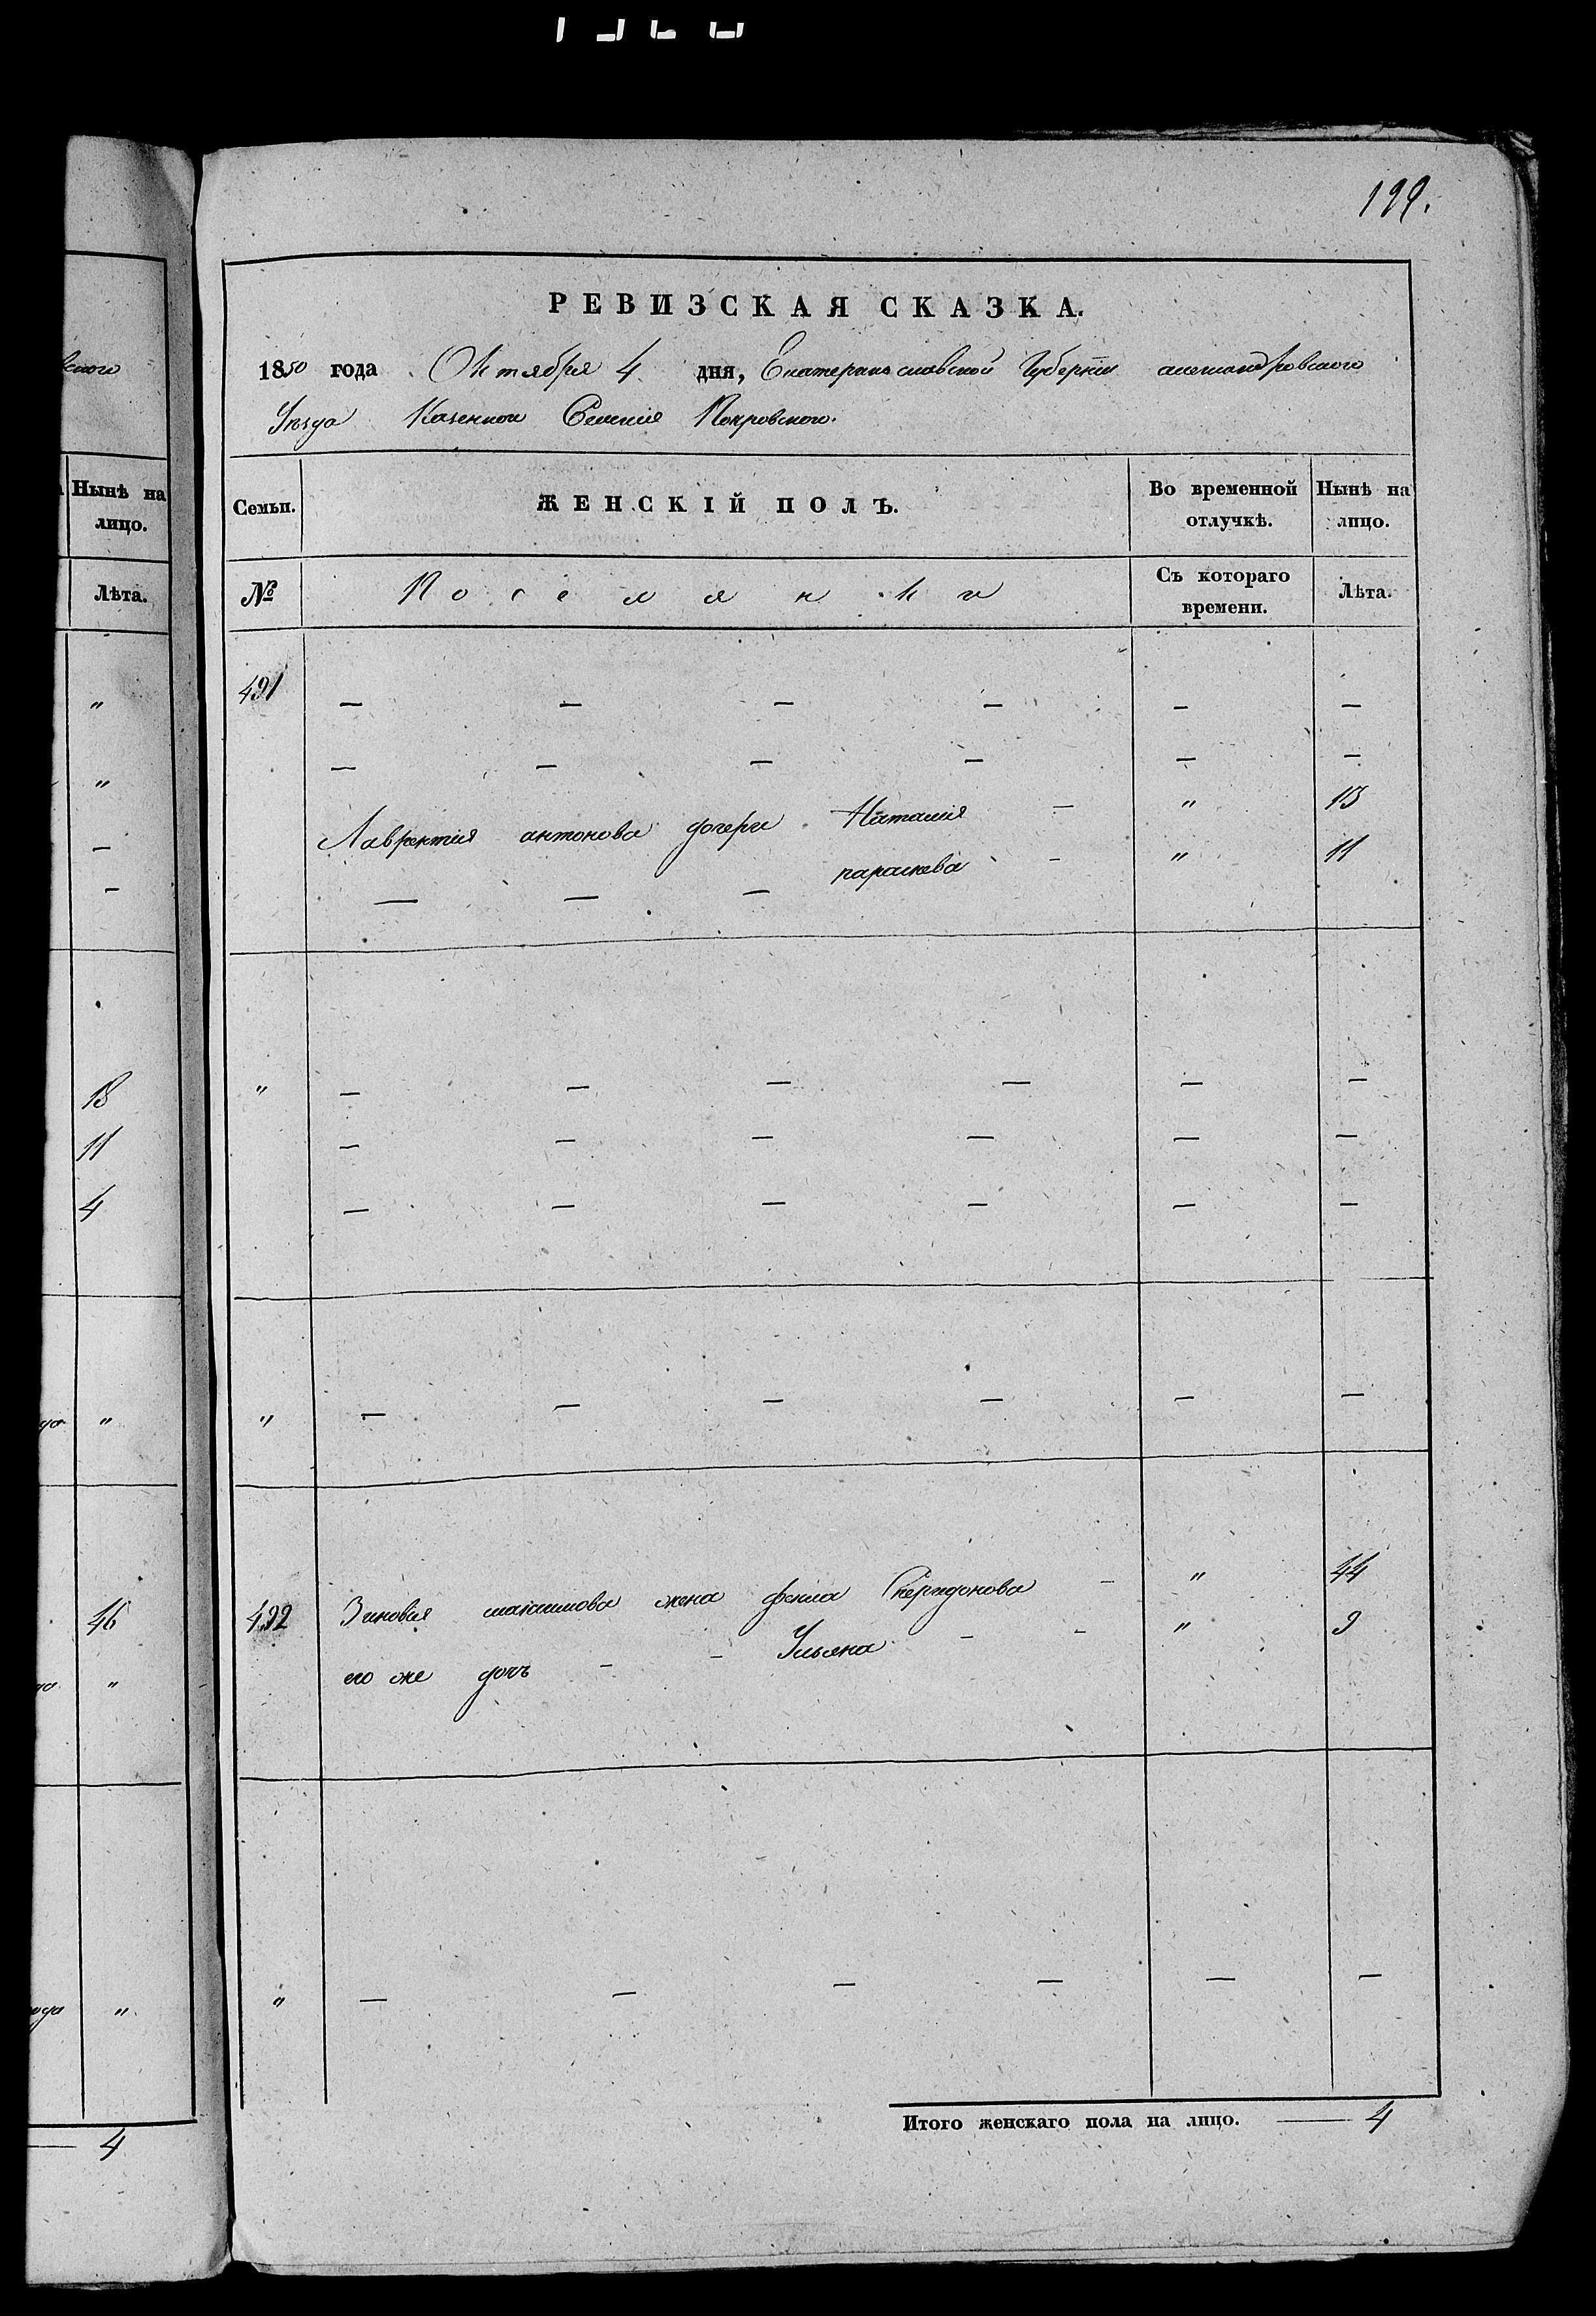 199.
РЕВИЗСКАЯ СКАЗКА.
1850 года Октября 4 дня, Екатеринославской Губерніи александровского
Уезда Казенного Селенія Покровского.
Нынѣ на
лицо.
Лѣта.
Семьи.
ЖЕНСКІЙ ПОЛЪ.
Во временной
отлучкѣ.
Нынѣ на
лицо.
№
Поселянки
Съ котораго
времени.
Лѣта.
491 — — — — — —
— — — — — —
Лаврентія антонова дочери Наталия — " 13
— — — параскева - " 11
" — — — — — —
— — — — — —
— — — — — —
" — — — — — —
492 Зиновія максимова жена фекла Спиридонова - " 44
его же дочь - - Ульяна - - " 9
" — — — — — —
Итого женскаго пола на лицо. — 4
"
"
—
—
18
11
4
"
46
"
"
— 4